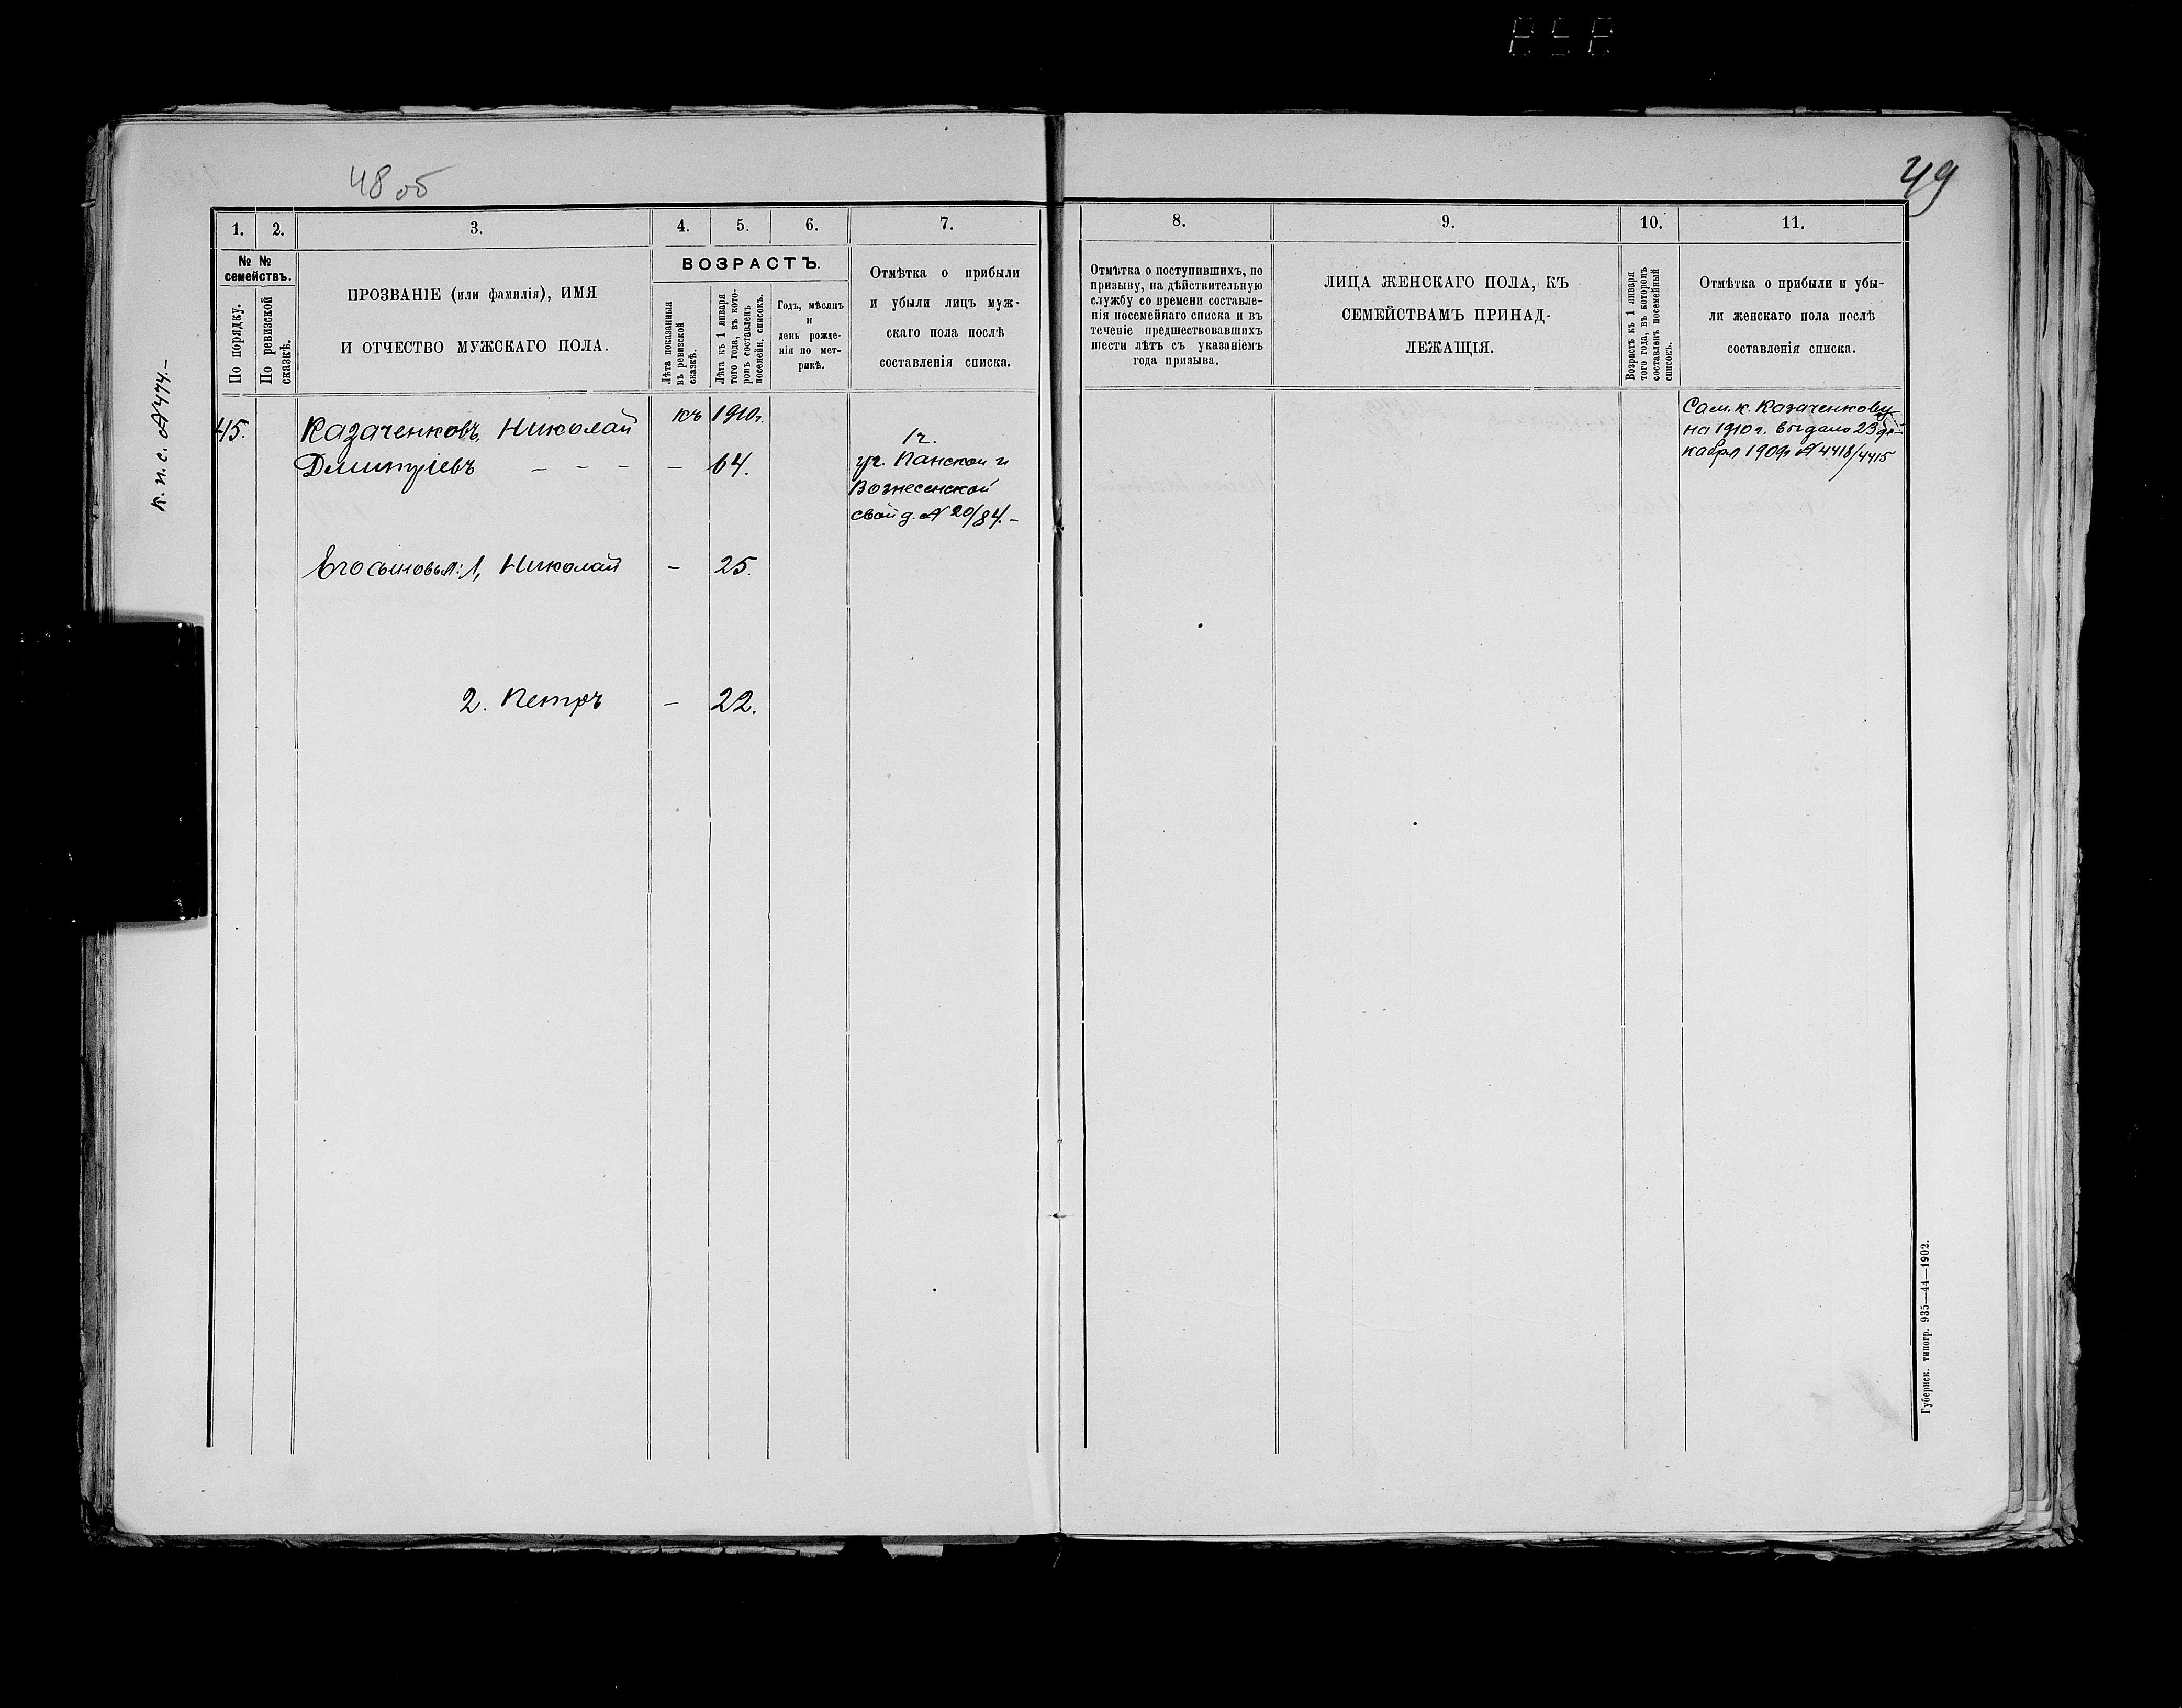 48 об
49
К. п. с. № 474.–
1.
2.
3.
4.
5.
6.
7.
8.
9.
10.
11.
№ №
семействъ.
По порядку.
По ревизской
сказкѣ.
ПРОЗВАНІЕ (или фамилія), ИМЯ
И ОТЧЕСТВО МУЖСКАГО ПОЛА.
ВОЗРАСТЪ.
Лѣта показанныя
въ ревизской
сказкѣ.
Лѣта къ 1 января
того года, въ кото-
ромъ составленъ
посемейн. списокъ.
Годъ, мѣсяцъ
и
день рожде-
нія по мет-
рикѣ.
Отмѣтка о прибыли
и убыли лицъ муж-
скаго пола послѣ
составленія списка.
Отмѣтка о поступившихъ, по
призыву, на дѣйствительную
службу со времени составле-
нія посемейнаго списка и въ
теченіе предшествовавшихъ
шести лѣтъ съ указаніемъ
года призыва.
ЛИЦА ЖЕНСКАГО ПОЛА, КЪ
СЕМЕЙСТВАМЪ ПРИНАД-
ЛЕЖАЩІЯ.
Возрастъ къ 1 января
того года, въ которомъ
составленъ посемейный
списокъ.
Отмѣтка о прибыли и убы-
ли женскаго пола послѣ
составленія списка.
45.
Казаченковъ, Николай
Дмитріевъ – – – – 64.
къ 1910 г.
1 ч.
уг. Панской и
Вознесенской
свой д. № 20/84.–
Сам. к. Казаченкову
на 1910 г. выдано 23 де-
кабря 1909 г № 4418/4415
Его сыновья: 1, Николай – 25.
2. Петръ – 22.
Губернск. типогр. 935—44—1902.